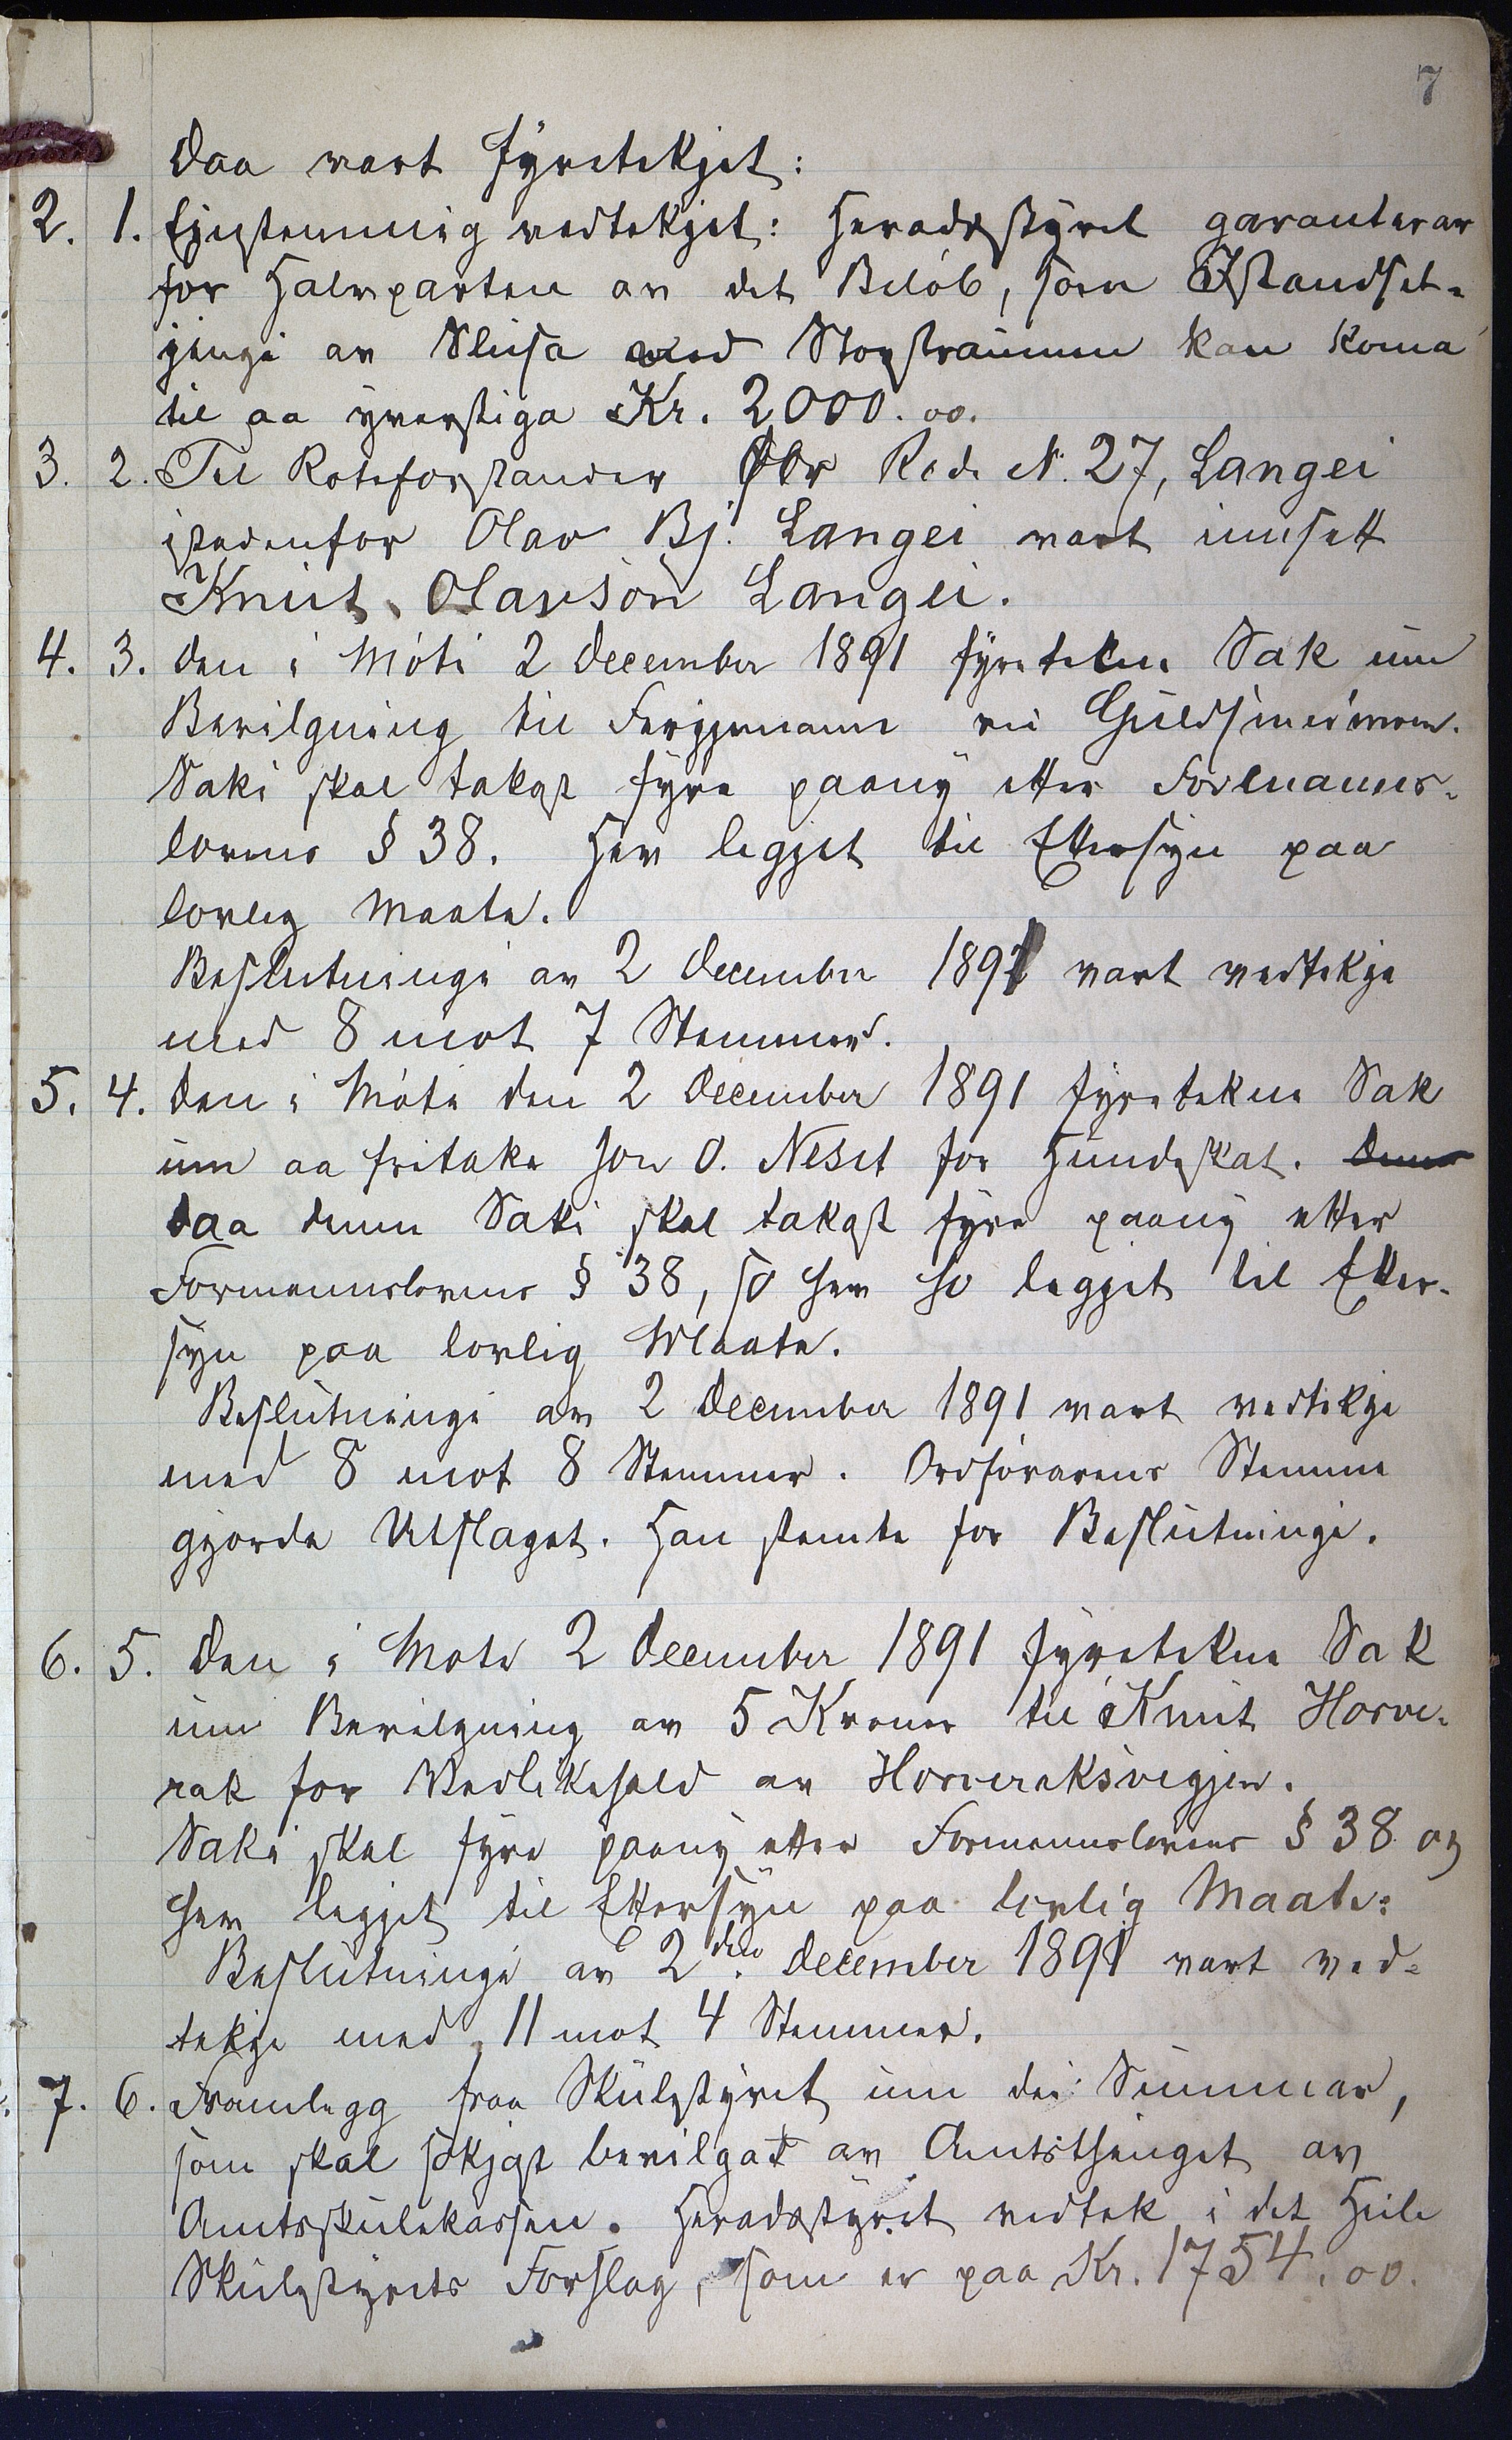 7
Daa vart fyretekjet:
2. 1. Einstemmig vedtekjet: Heradsstyret garanterar
for Halvparten av det Belöb, som Istandset-
jingi av Slusa ved Storstraumen kan koma
til aa yverstiga Kr. 2000.00.
3. 2. Til Roteforstander for Rode N. 27, Langei
istedenfor Olav Bj. Langei vart innsett
Knut Olavson Langei.
4. 3. Den i Möti 2 December 1891 fyretekne Sak um
Bevilgning til Ferjemann vii
Saki skal takast fyre paany etter Formanns-
lovens § 38. Hev legjet til Ettersyn paa
lovleg Maate.
Beslutningi av 2 December 1891 vart vedtekje
med 8 mot 7 Stemmer.
5. 4. Den i Möte den 2 December 1891 fyretekne Sak
um aa fritake Jon O. Neset for Hundeskat. Denn
Daa denne Saki skal takast fyre paany etter
Formannslovens § 38, so hev ho legjet til Etter-
syn paa lovlig Maate.
Beslutningi av 2 December 1891 vart vedtekje
med 8 mot 8 Stemmer. Ordförarens Stemme
gjorde Utslaget. Han stemte for Beslutningi.
6. 5. Den i Mote 2 December 1891 fyretekne Sak
um Bevilgning av 5 Kroner til Knut Horve-
rak for Vedlikehald av Horveraksvegjen.
Saki skal fyre paany etter Formannslovens § 38 og
hev legjet til Ettersyn paa lovlig Maate.
Beslutningi av 2den December 1891 vart ved-
tekje med 11 mot 4 Stemmer.
7. 6. Framlegg fraa Skulestyret um dei Summar,
som skal sökjast bevilgat av Amtsthinget av
Amtsskulekassen. Heradsstyret vedtok i det Heile
Skulestyrets Forslag, som er paa Kr. 1754.00.